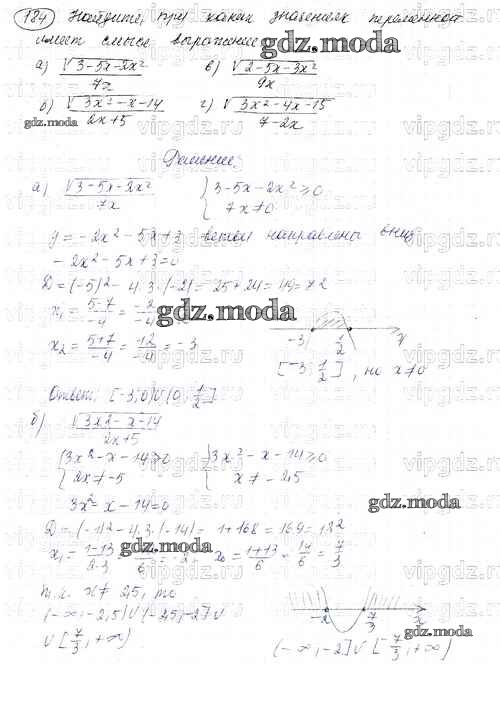 184) Найдите, при каких значениях переменной
имеет смысл выражение
gdz.moda
а) √3-5x-2x² / 7x   в) √2-5x-3x² / 9x
б) √3x²-x-14 / 2x+5   г) √3x²-4x-15 / 7-2x
gdz.moda
Решение
а) √3-5x-2x² / 7x   { 3-5x-2x² ≥ 0
7x ≠ 0
y = -2x²-5x+3 ветви направлены вниз
-2x²-5x+3=0
D = (-5)²-4·3·(-2) = 25+24 = 49 = 7²
x₁ = 5-7 / -4 = -2 / -4
gdz.moda
x₂ = 5+7 / -4 = 12 / -4 = -3
-3   1/2   x
[-3; 1/2], но x≠0
Ответ: [-3;0)∪(0; 1/2]
б) √3x²-x-14 / 2x+5
{ 3x²-x-14 ≥ 0   { 3x²-x-14 ≥ 0
2x ≠ -5   x ≠ -2,5
3x²-x-14=0
gdz.moda
D = (-1)²-4·3·(-14) = 1+168 = 169 = 13²
x₁ = 1-13 / 2·3 = / 6 = -2   x₂ = 1+13 / 6 = 14 / 6 = 7 / 3
gdz.moda
т.к. x ≠ 2,5, то
(-∞; -2,5)∪(-2,5; -2]∪
∪[7/3; +∞)
-2   7/3   x
gdz.moda
(-∞; -2]∪[7/3; +∞)
vipgdz.ru